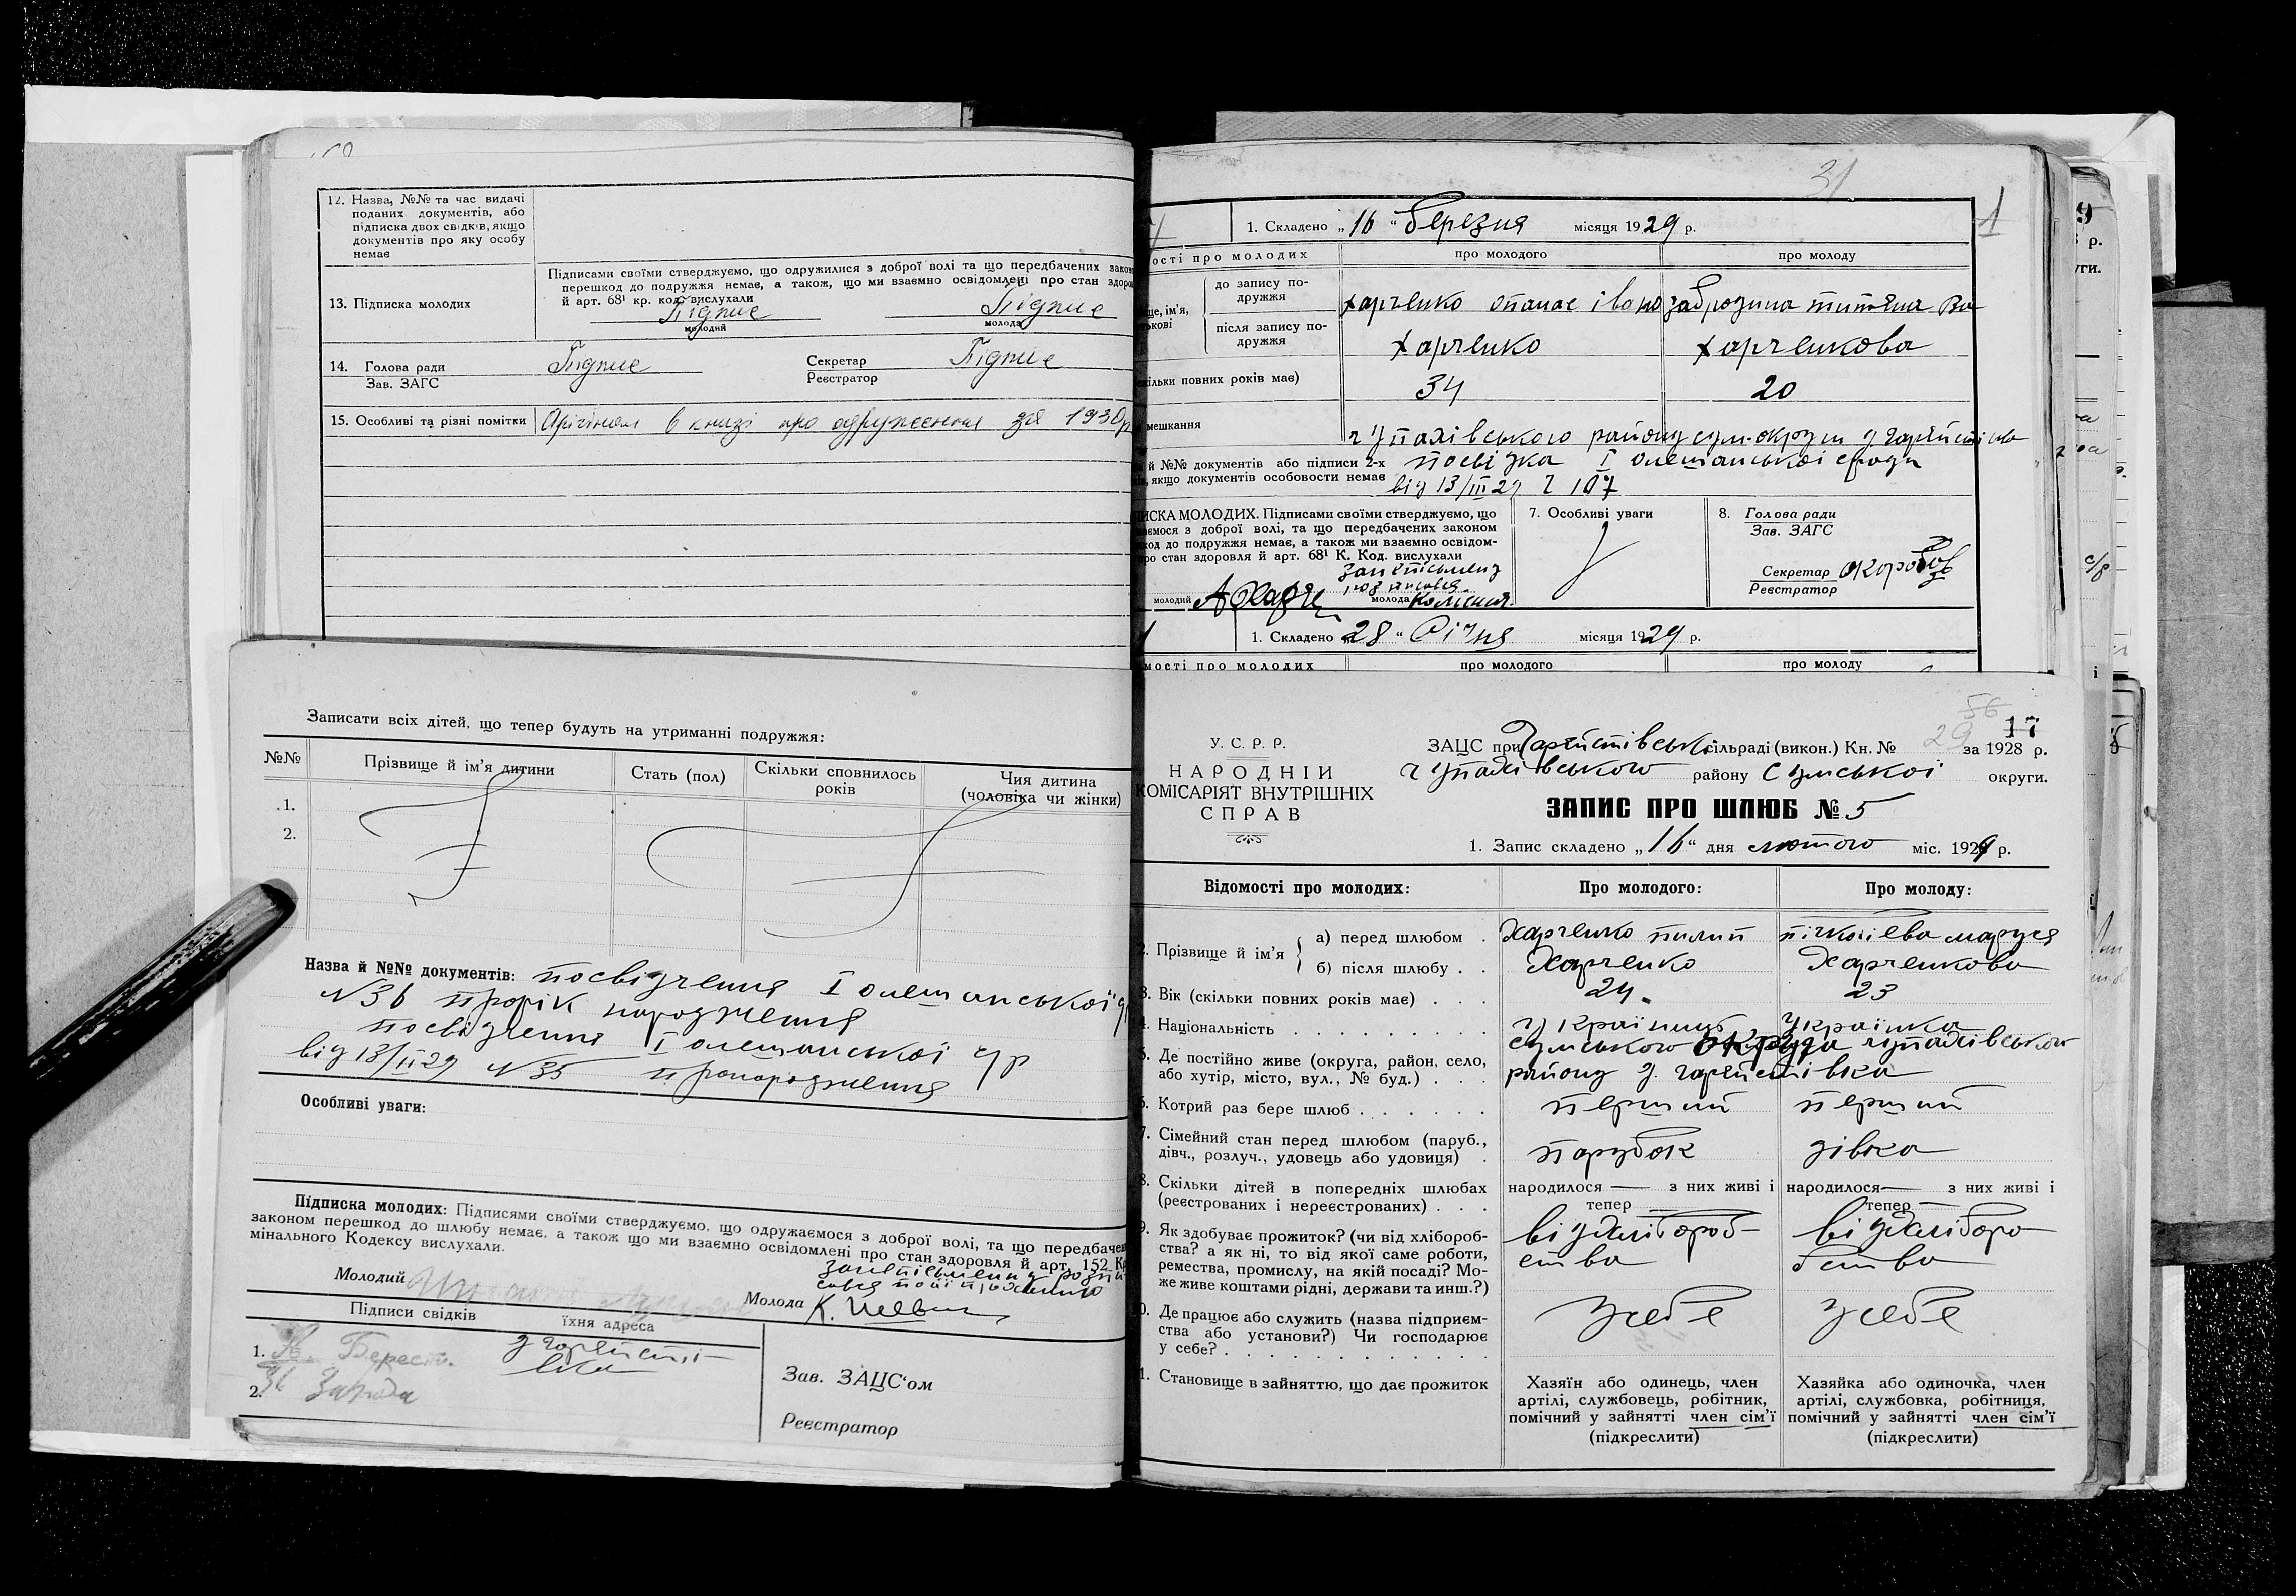 12. Назва, №№ та час видачі
поданих документів, або
підписка двох свідків, якщо
документів про яку особу
немає
13. Підписка молодих
Підписами своїми стверджуємо, що одружилися з доброї волі та що передбачених закон
перешкод до подружжя немає, а також, що ми взаємно освідомлені про стан здоров
й арт. 68¹ кр. код. вислухали
Підпис Підпис
молодий молода
14. Голова ради Підпис Секретар Підпис
Зав. ЗАГС Реєстратор
15. Особливі та різні помітки Орігінал в книзі про одруження за 1930р
Записати всіх дітей, що тепер будуть на утриманні подружжя:
№№ Прізвище й ім'я дитини Стать (пол) Скільки сповнилось років Чия дитина (чоловіка чи жінки)
1.
2.
Назва й №№ документів: посвідчення І олешанської
N 36 про рік народження
посвідчення І олешанської с/р
від 13/II 29 N 35 про народження
Особливі уваги:
Підписка молодих: Підписами своїми стверджуємо, що одружаємося з доброї волі, та що передбачен
законом перешкод до шлюбу немає, а також що ми взаємно освідомлені про стан здоровля й арт. 152 К
мінального Кодексу вислухали.
Молодий
Молода К.
Підписи свідків їхня адреса
1. Берест.
2.
Зав. ЗАЦС'ом
Реєстратор
31
1
1. Складено „16" березня місяця 1929 р.
ості про молодих про молодого про молоду
ще, ім'я, до запису по-
дружжя
Харченко Опанас Івано Забродина Титяна Ва
ькові після запису по-
дружжя
Харченко Харченкова
кільки повних років має) 34 20
мешкання
Чупахівського району Сум-округи
й №№ документів або підписи 2-х посвідка І олешанської с/ради
ів, якщо документів особовости немає від 13/III 29 Ч 107
ПИСКА МОЛОДИХ. Підписами своїми стверджуємо, що
аємося з доброї волі, та що передбачених законом
код до подружжя немає, а також ми взаємно освідом-
про стан здоровля й арт. 68¹ К. Код. вислухали
молодий молода
7. Особливі уваги
8. Голова ради
Зав. ЗАГС
Секретар
Реєстратор
1. Складено „28" Січня місяця 1929 р.
мості про молодих про молодого про молоду
У. С. Р. Р.
НАРОДНІЙ
КОМІСАРІЯТ ВНУТРІШНІХ
СПРАВ
56
29
17
ЗАЦС при сільраді (викон.) Кн. № за 1928 р.
Чупахівського району Сумської округи.
ЗАПИС ПРО ШЛЮБ № 5
1. Запис складено „16" дня лютого міс. 1929 р.
Відомості про молодих: Про молодого: Про молоду:
2. Прізвище й ім'я а) перед шлюбом . Харченко Пилип Маруся
б) після шлюбу . . Харченко Харченкова
3. Вік (скільки повних років має) . . . 24 23
4. Національність . . . . . . . . . Українець Українка
5. Де постійно живе (округа, район, село,
або хутір, місто, вул., № буд.) . . .
Сумського округа Чупахівського
району
6. Котрий раз бере шлюб . . . . . . перший перший
7. Сімейний стан перед шлюбом (паруб.,
дівч., розлуч., удовець або удовиця) .
парубок дівка
8. Скільки дітей в попередніх шлюбах
(реєстрованих і нереєстрованих) . . .
народилося — з них живі і
тепер —
народилося — з них живі і
тепер —
9. Як здобуває прожиток? (чи від хлібороб-
ства? а як ні, то від якої саме роботи,
ремества, промислу, на якій посаді? Мо-
же живе коштами рідні, держави та инш.?)
від хлібороб-
ства
від хліборо
бства
10. Де працює або служить (назва підприєм-
ства або установи?) Чи господарює
у себе? . . . . . . . . . . . .
у себе у себе
11. Становище в зайняттю, що дає прожиток
Хазяїн або одинець, член
артілі, службовець, робітник,
помічний у зайнятті член сім'ї
(підкреслити)
Хазяйка або одиночка, член
артілі, службовка, робітниця,
помічний у зайнятті член сім'ї
(підкреслити)